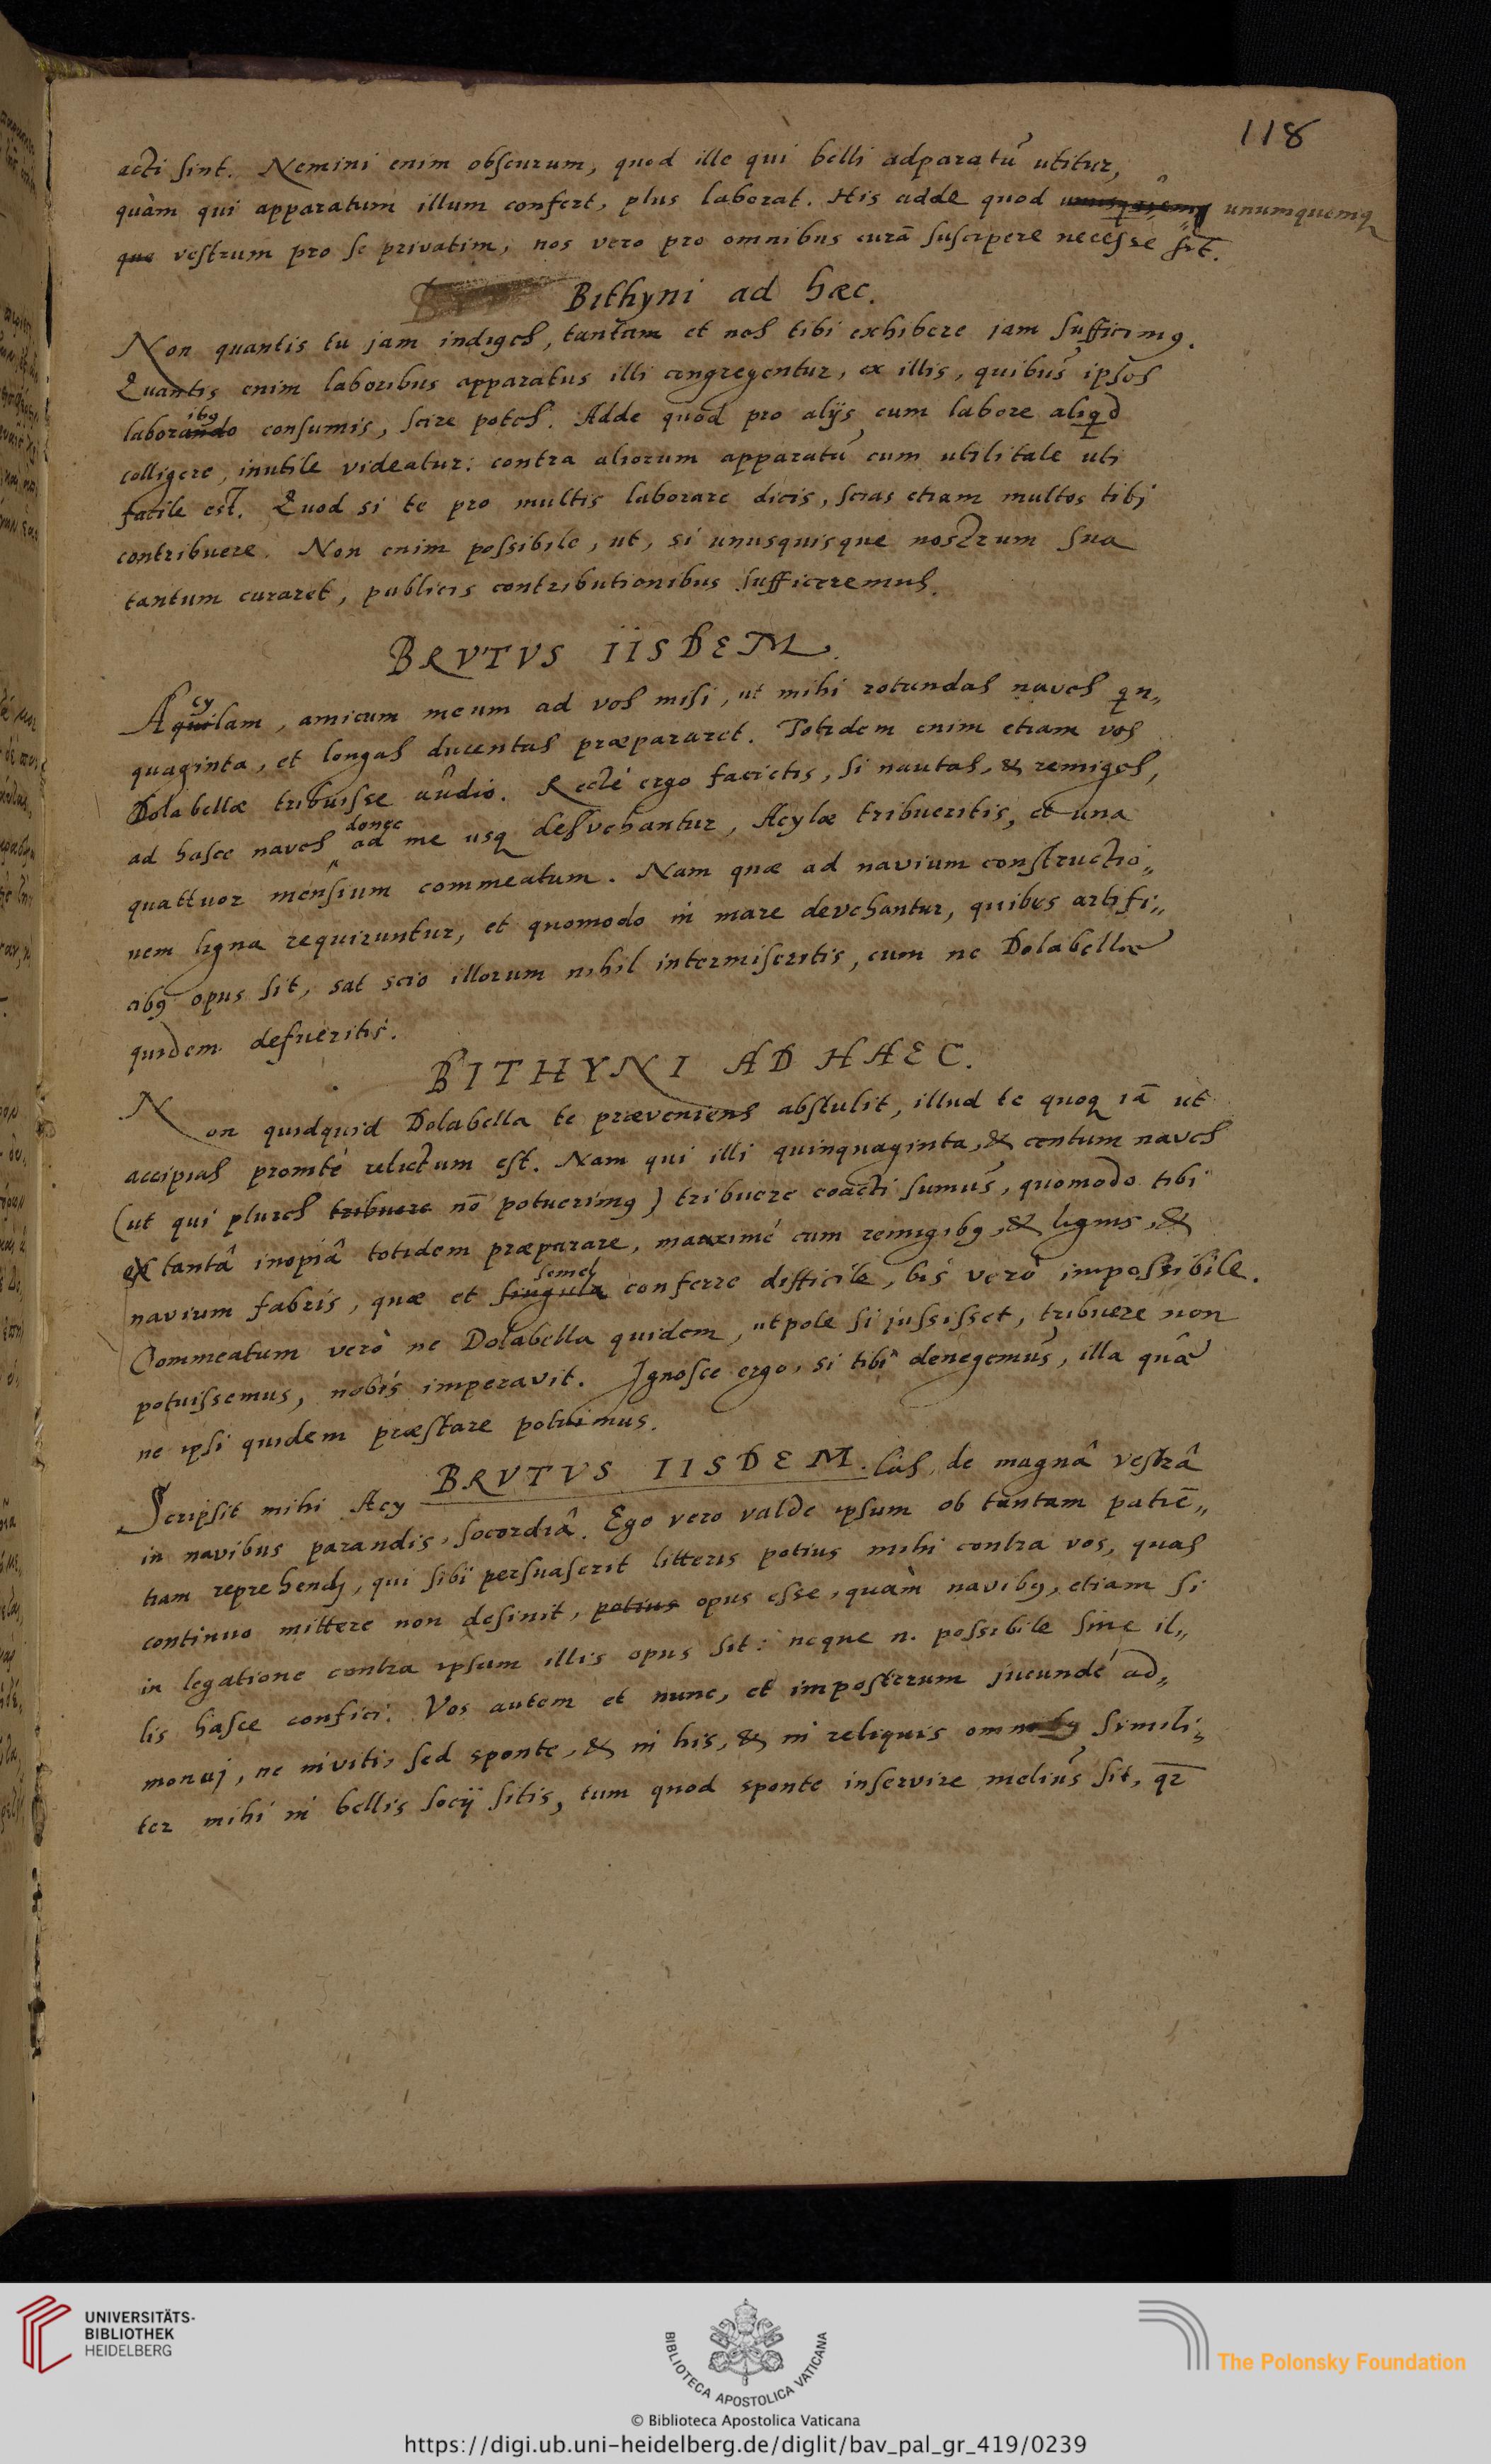 118
acti sint. Nemini enim obscurum, quod ille qui belli adparatū utitur,
quàm qui apparatum illum confert, plus laborat. His adde quod unumquemq
que vestrum pro se privatim, nos vero pro omnibus curā suscipere necesse sit.
Bithyni ad hæc.
Non quantis tu jam indiges, tantam et nos tibi exhibere jam sufficimꝰ.
Quantis enim laboribus apparatus illi congregentur, ex illis, quibus ipsos
laborandoibꝰ consumis, scire potes. Adde quod pro alijs cum labore aliqd
colligere, inutile videatur: contra aliorum apparatū cum utilitate uti
facile est. Quod si te pro multis laborare dicis, scias etiam multos tibj
contribuere. Non enim possibile, ut, si unusquisque nostrum sua
tantum curaret, publicis contributionibus sufficeremus.
BRVTVS IISDEM.
Acyquilam, amicum meum ad vos misi, ut mihi rotundas naves qn„
quaginta, et longas ducentas præpararet. Totidem enim etiam vos
Dolabellæ tribuisse audio. Recté ergo facietis, si nautas, & remiges,
ad hasce naves donec ad me usq desvehantur, Acylæ tribueritis, et una
quattuor mensium commeatum. Nam quæ ad navium constructio„
nem ligna requiruntur, et quomodo in mare devehantur, quibus artifi„
cibꝰ opus sit, sat scio illorum nihil intermiseritis, cum ne Dolabellæ
quidem defueritis.
BITHYNI AD HAEC.
Non quidquid Dolabella te præveniens abstulit, illud te quoq iā ut
accipias promté relictum est. Nam qui illi quinquaginta, & centum naves
(ut qui plures tribuere nō potuerimꝰ) tribuere coacti sumus, quomodo tibi
ex tantâ inopiâ totidem præparare, maxime cum remigibꝰ, & lignis, &
navium fabris, quæ et singula semel conferre difficile, bis verò impossibile.
Commeatum verò ne Dolabella quidem, utpote si jussisset, tribuere non
potuissemus, nobis imperavit. Ignosce ergo, si tibi denegemus, illa quæ
ne ipsi quidem præstare potuimus.
BRVTVS IISDEM.
Scripsit mihi Acy las, de magnâ vestrâ
in navibus parandis, socordiâ. Ego vero valde ipsum ob tantam patiē„
tiam reprehendj, qui sibi persuaserit litteris potius mihi contra vos, quas
continuo mittere non desinit, potius opus esse, quàm navibꝰ, etiam si
in legatione contra ipsum illis opus sit: neque n. possibile sine il„
lis hasce confici. Vos autem et nunc, et imposterum jucundé ad„
monuj, ne inviti, sed sponte, & in his, & in reliquis omnibꝰ simili„
ter mihi in bellis socij sitis, tum quod sponte inservire melius sit, qz
UNIVERSITÄTS-
BIBLIOTHEK
HEIDELBERG
BIBLIOTECA APOSTOLICA VATICANA
The Polonsky Foundation
© Biblioteca Apostolica Vaticana
https://digi.ub.uni-heidelberg.de/diglit/bav_pal_gr_419/0239